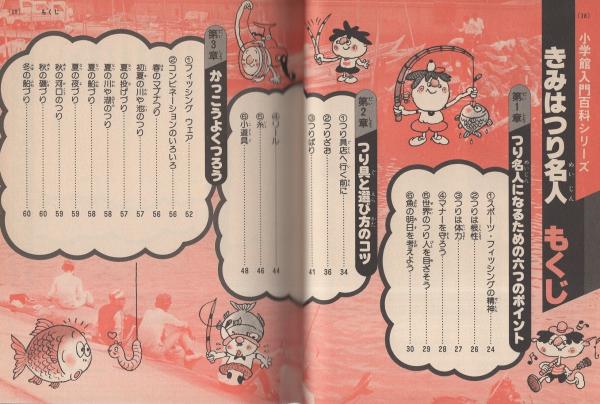 (16)
小学館入門百科シリーズ
きみはつり名人 もくじ
第1章
つり名人になるための六つのポイント
①スポーツ・フィッシングの精神 24
②つりは根性 26
③つりは体力 27
④マナーを守ろう 28
⑤世界のつり人を目ざそう 29
⑥魚の明日を考えよう 30
第2章
つり具と選び方のコツ
①つり具店へ行く前に 34
②つりざお 36
③つりばり 41
④リール 44
⑤糸 46
⑥小道具 48
第3章
かっこうよくつろう
①フィッシング ウェア 52
②コンビネーションのいろいろ 56
春のマブナつり 56
初夏の川や池のつり 57
夏の投げづり 57
夏の川や湖のつり 58
夏の船づり 58
夏の夜づり 59
秋の河口のつり 59
秋の磯づり 60
冬の船づり 60
もくじ